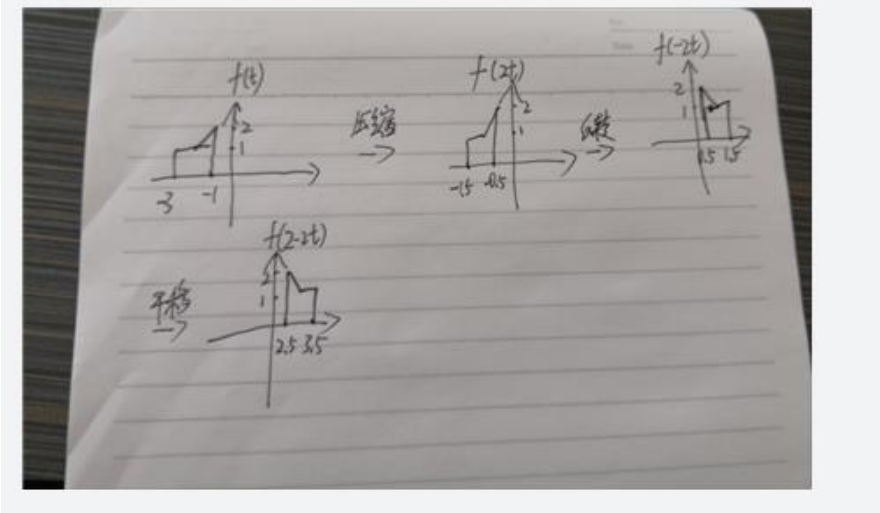 f(t)
2
1
-3 -1
压缩
f(2t)
2
1
-1.5 -0.5
反转
f(-2t)
2
1
0.5 1.5
平移
f(2-2t)
2
1
2.5 3.5